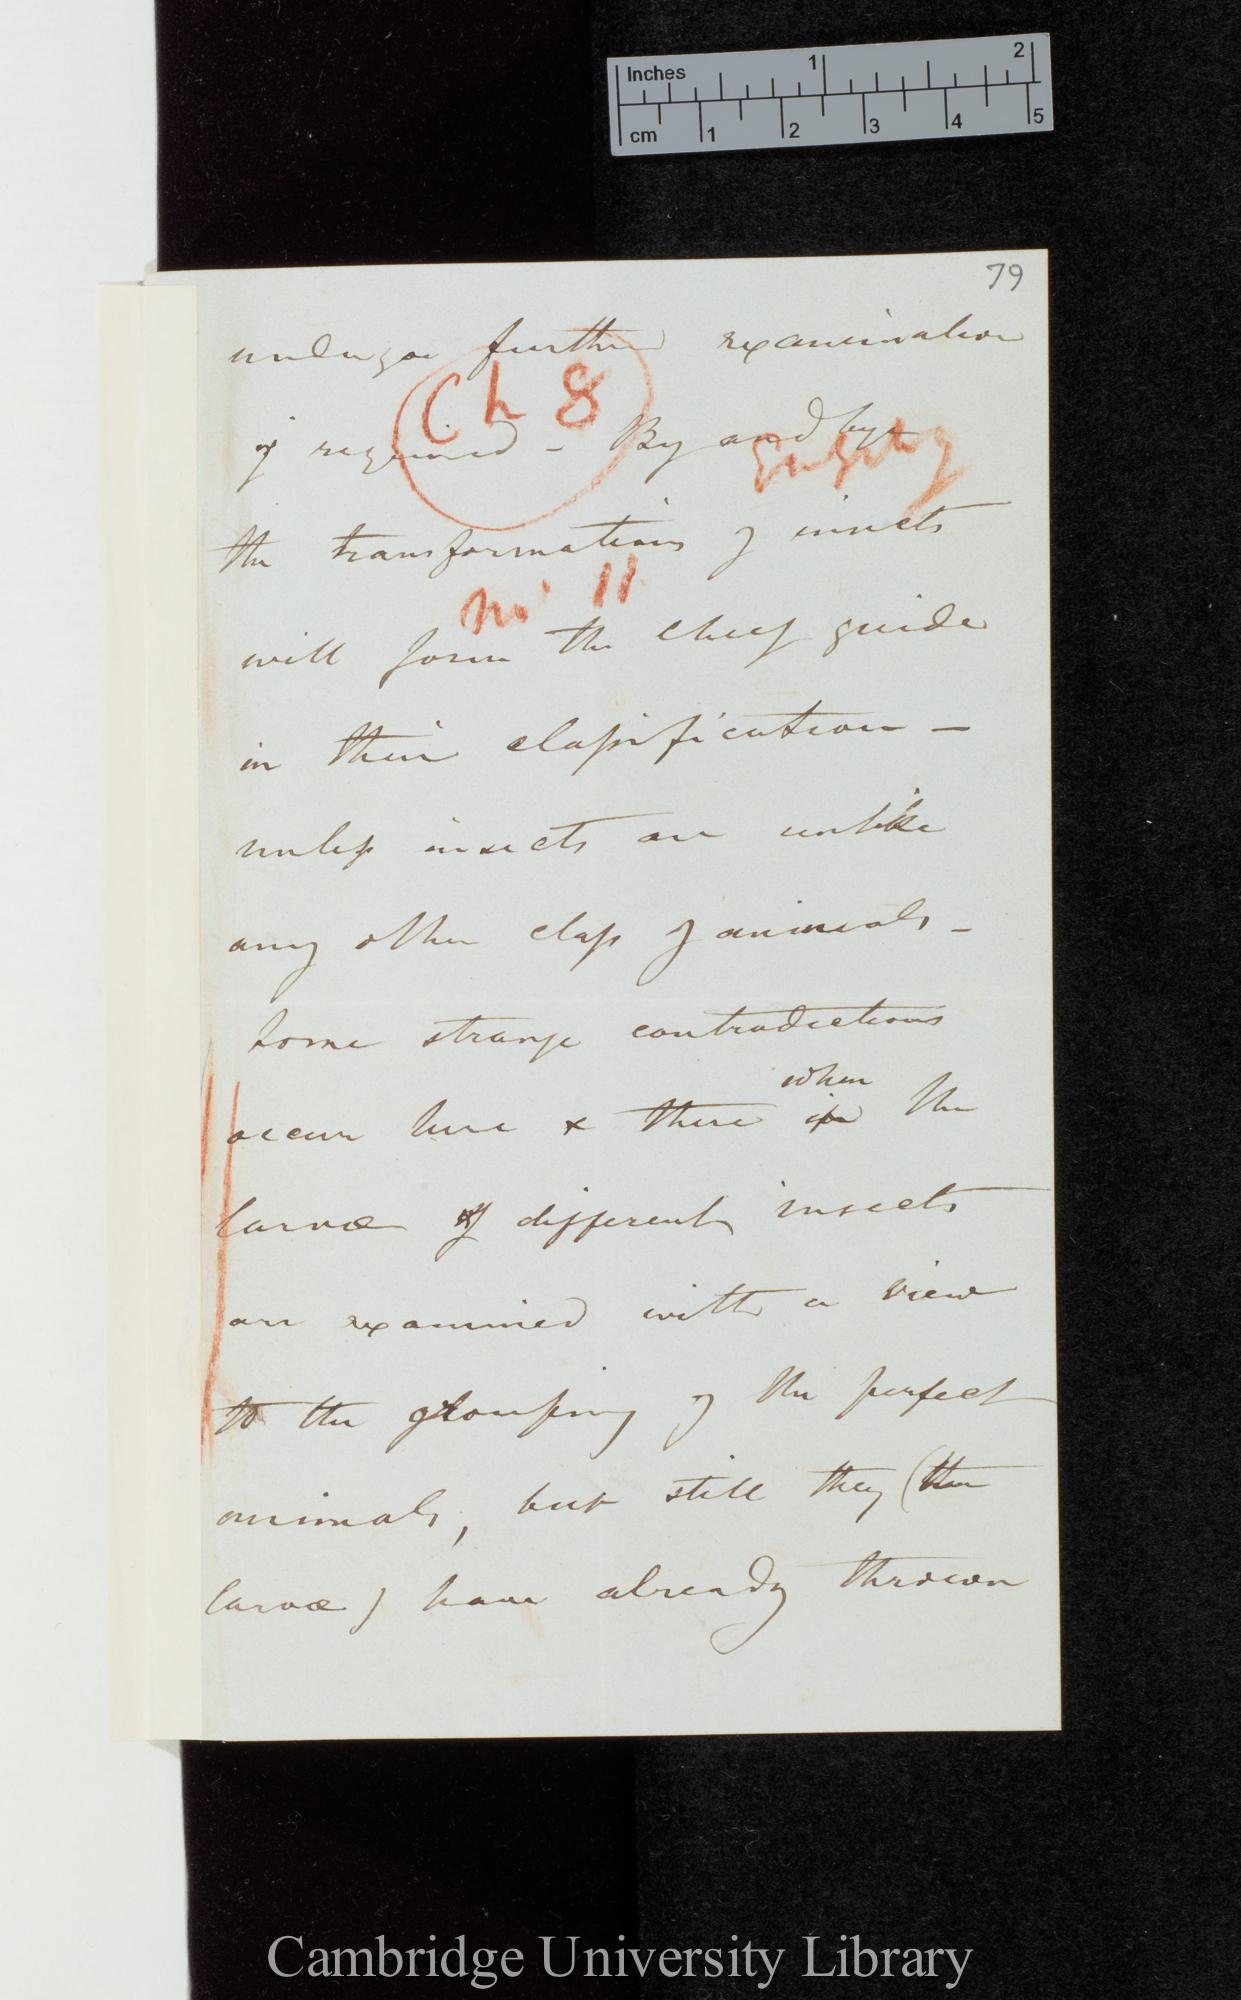 Inches 1 2
cm 1 2 3 4 5
79
undergo further examination
Ch 8
if required – By and bye
the transformations of insects
No 11
will form the chief guide
in their classification –
unless insects are unlike
any other class of animals –
Some strange contradictions
when
occur here & there in the
larvæ of different insects
are examined with a view
to the grouping of the perfect
animals, but still they (the
larvæ) have already thrown
Cambridge University Library